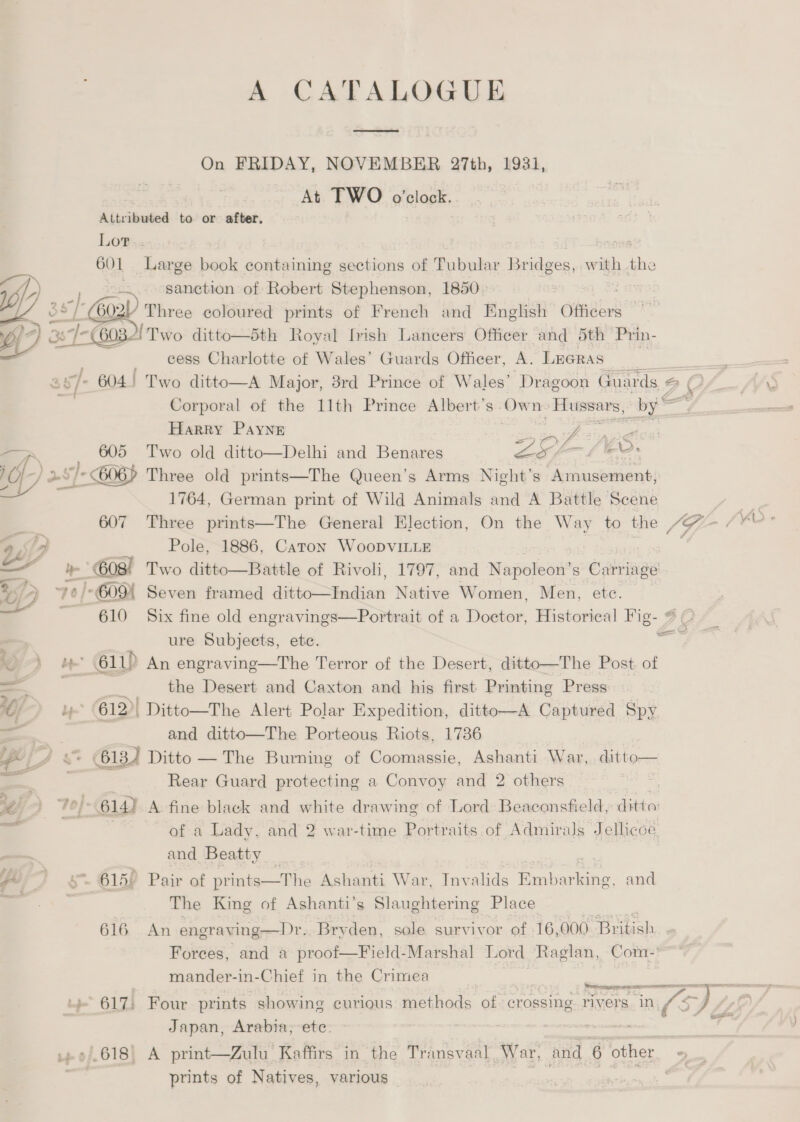 A CATALOGUE
On FRIDAY, NOVEMBER 27th, 1931,
At TWO o'clock.
Attributed to or after.
Lot
601 Large book containing sections of Tubular Bridges, with the
sanction of Robert Stephenson, 1850
35/- 602 Three coloured prints of French and English Officers
35/- 603 Two ditto—5th Royal Irish Lancers Officer and 5th Prin-
cess Charlotte of Wales' Guards Officer, A. LEGRAS
604 Two ditto—A Major, 3rd Prince of Wales' Dragoon Guards
Corporal of the 11th Prince Albert's Own Hussars, by
HARRY PAYNE
605 Two old ditto—Delhi and Benares
606 Three old prints—The Queen's Arms Night's Amusement,
1764, German print of Wild Animals and A Battle Scene
607 Three prints—The General Election, On the Way to the
Pole, 1886, CATON WOODVILLE
608 Two ditto—Battle of Rivoli, 1797, and Napoleon's Carriage
70/- 609 Seven framed ditto—Indian Native Women, Men, etc.
610 Six fine old engravings—Portrait of a Doctor, Historical Fig-
ure Subjects, etc.
611 An engraving—The Terror of the Desert, ditto—The Post of
the Desert and Caxton and his first Printing Press
612 Ditto—The Alert Polar Expedition, ditto—A Captured Spy
and ditto—The Porteous Riots, 1736
613 Ditto — The Burning of Coomassie, Ashanti War, ditto—
Rear Guard protecting a Convoy and 2 others
70/- 614 A fine black and white drawing of Lord Beaconsfield, ditto
of a Lady, and 2 war-time Portraits of Admirals Jellicoe
and Beatty
615 Pair of prints—The Ashanti War, Invalids Embarking, and
The King of Ashanti's Slaughtering Place
616 An engraving—Dr. Bryden, sole survivor of 16,000 British
Forces, and a proof—Field-Marshal Lord Raglan, Com-
mander-in-Chief in the Crimea
617 Four prints showing curious methods of crossing rivers in
Japan, Arabia, etc.
618 A print—Zulu Kaffirs in the Transvaal War, and 6 other
prints of Natives, various